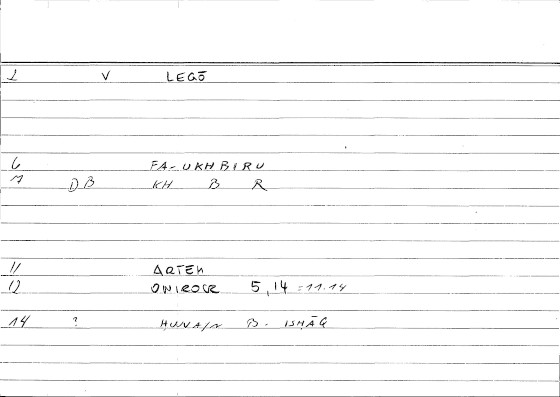 2 V LEGŌ
6 FA-UKHBIRU
7 DB KH B R
11 ARTEM
12 ONIROCR 5,14 =11.14
14 ? HUNAIN B. ISHĀQ